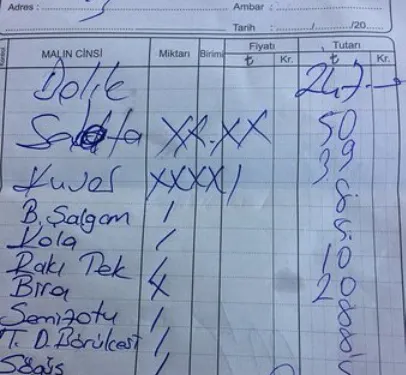 Adres : Ambar :
Tarih : / /20
MALIN CİNSİ Miktarı Birimi Fiyatı Tutarı
₺ Kr. ₺ Kr.
Balık 247.-
Salata XX.XX 50
XXXX/ 39
B. Şalgam / 8.
Kola / 5.
Rakı Tek / 10
Bira X 20
Semizotu / 8
T. D. Börülcesi / 8
Söğüş /